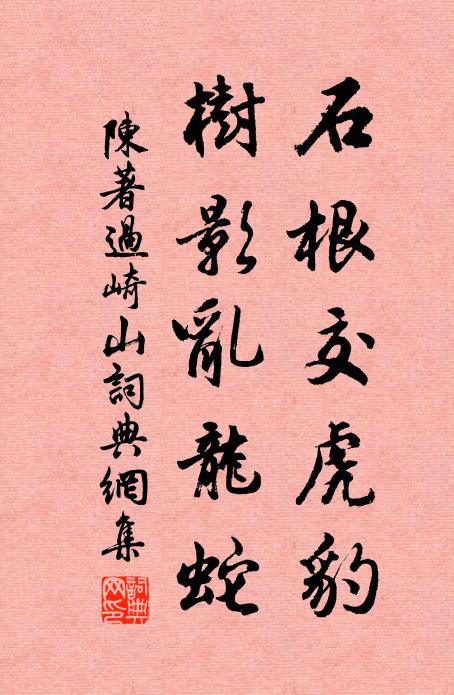 石根交虎豹
樹影亂龍蛇
陳著過崎山詞典網集
詞典網印